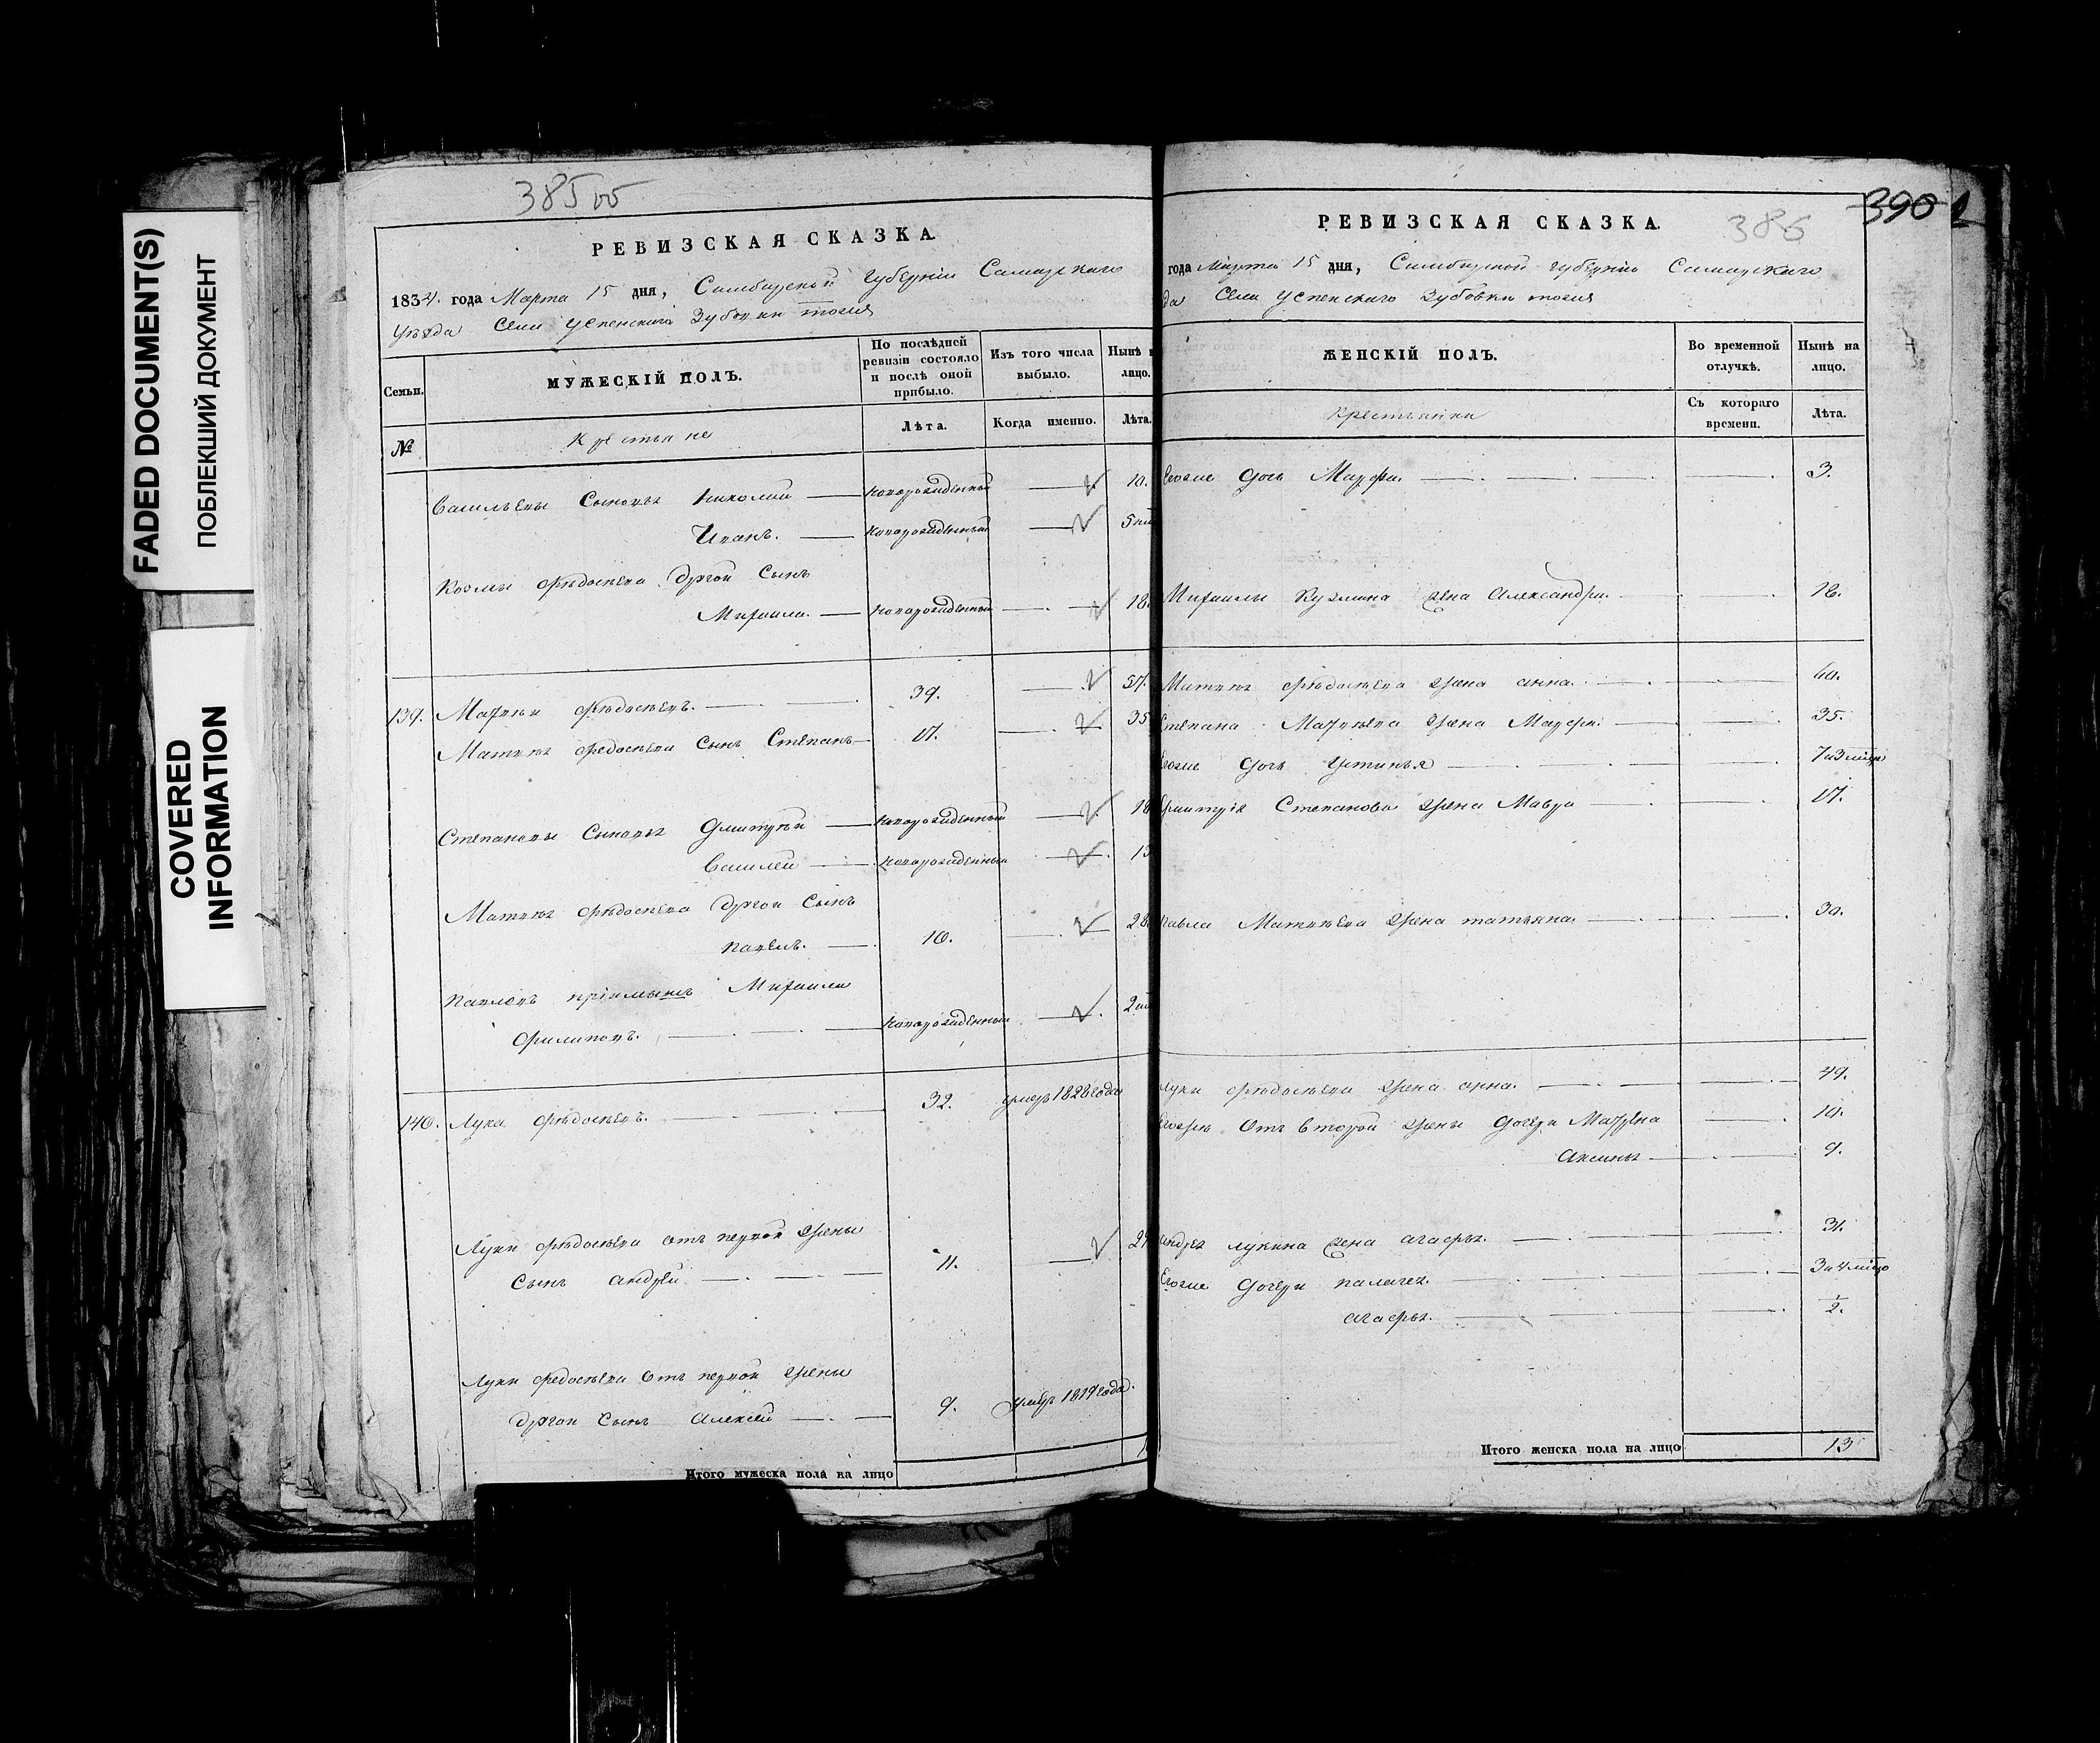 FADED DOCUMENT(S)
ПОБЛЕКШИЙ ДОКУМЕНТ
COVERED
INFORMATION
385 об
РЕВИЗСКАЯ СКАЗКА.
1834. года Марта 15 дня, Симбирской губерніи Самарскаго
Уѣзда Села Успенскаго Зубовки тожъ
Семьи.
МУЖЕСКІЙ ПОЛЪ.
По послѣдней ревизіи состояло и послѣ оной прибыло.
Изъ того числа выбыло.
Нынѣ н лицо.
№
Крестьяне
Лѣта.
Когда именно.
Лѣта.
Васильевы Сыновья Николай — новорожденный — 10.
Иванъ. — новорожденный — 5
Козмы Ѳедосѣева другой Сынъ
Михаила. — новорожденный — 18.
139. Матвѣй Ѳедосѣевъ. — 39. — 57.
Матвѣя Ѳедосѣева сынъ Степанъ — 17. — 35
Степановы Сыновья Дмитрѣй — новорожденный — 18
Василей — новорожденный — 13
Матвѣя Ѳедосѣева другой Сынъ
Павелъ. — 10. — 28
Павловъ пріимышъ Михаила
Филиповъ. — новорожденный — 2
140. Лука Ѳедосѣевъ. — 32. умеръ 1828 года
Луки Ѳедосѣева отъ первой жены
Сынъ Андрей — 11. — 29
Луки Ѳедосѣева отъ первой жены
другой Сынъ Алексей — 9. умеръ 1819 года.
Итого мужеска пола на лицо
390
386
РЕВИЗСКАЯ СКАЗКА.
года Марта 15 дня, Симбирской губерніи Самарскаго
да Села Успенскаго Зубовки тожъ
ЖЕНСКІЙ ПОЛЪ.
Во временной отлучкѣ.
Нынѣ на лицо.
Крестьянки
Съ котораго времени.
Лѣта.
Евоже дочь Марфа. — 3.
Михаилы Кузмина жена Александра. — 18.
Матвѣя Ѳедосѣева жена анна. — 60.
Степана Матвѣева жена Марфа — 35.
Евоже дочь Устинья — 7 и 3 мѣся
Дмитрія Степанова жена Мавра — 17.
Павла Матвѣева жена татьяна. — 30.
Луки Ѳедосѣева жена анна. — 49.
Евожъ отъ второй жены дочери Матрена — 10.
Аксинья — 9.
Андрея лукина жена агафья. — 31.
Евоже дочери палагея. — 3 и 4 мѣсяц
агафья. — ½.
Итого женска пола на лицо 13